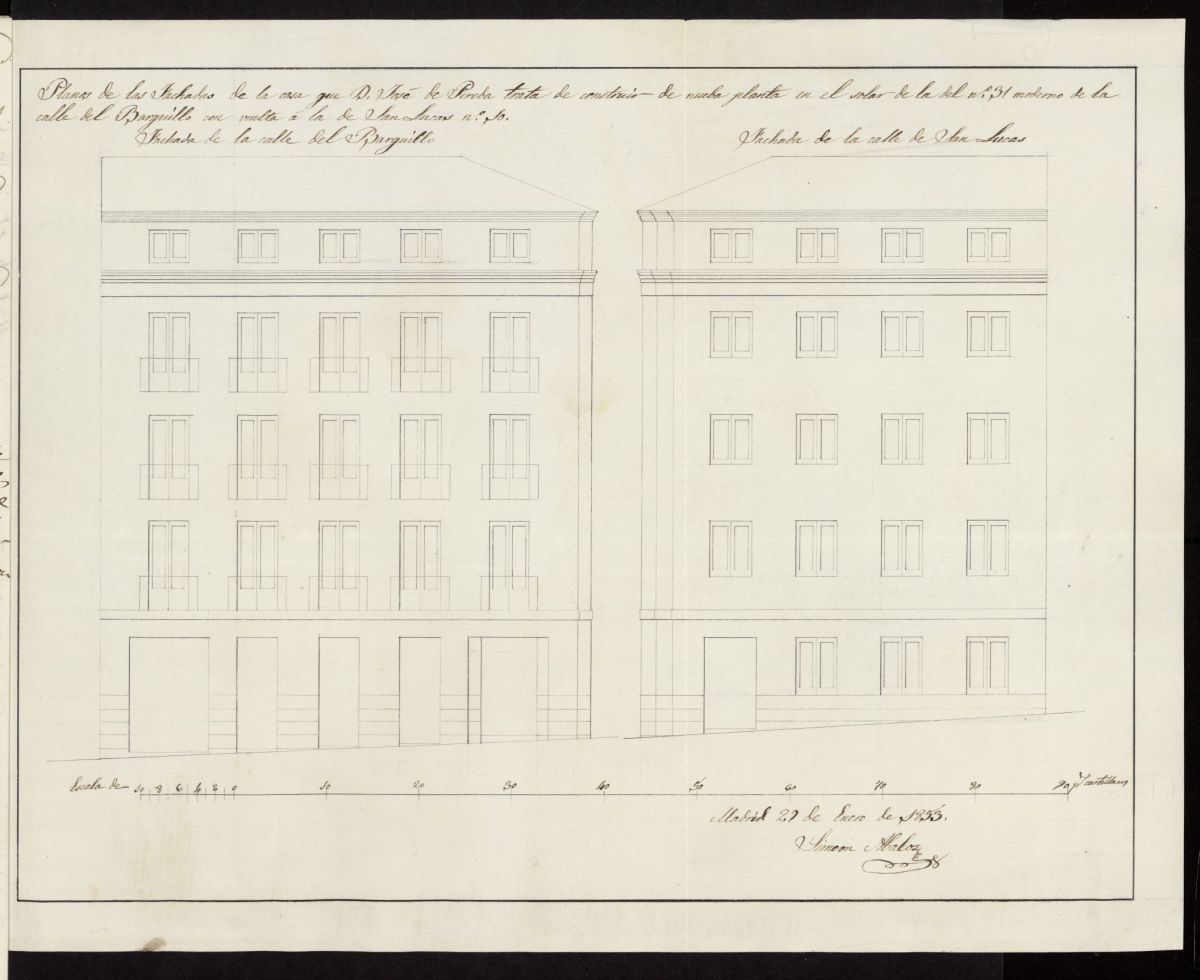 Planos de las Fachadas de la casa que D. José de Pereda trata de construir de nueba planta en el solar de la del n.º 31 moderno de la
calle del Barquillo con vuelta á la de San Lucas n.º 10.
Fachada de la calle del Barquillo
Fachada de la calle de San Lucas
Escala de 10 8 6 4 2 0 10 20 30 40 50 60 70 80 90 p.s castellanos
Madrid 29 de Enero de 1853.
Simeon Abalos